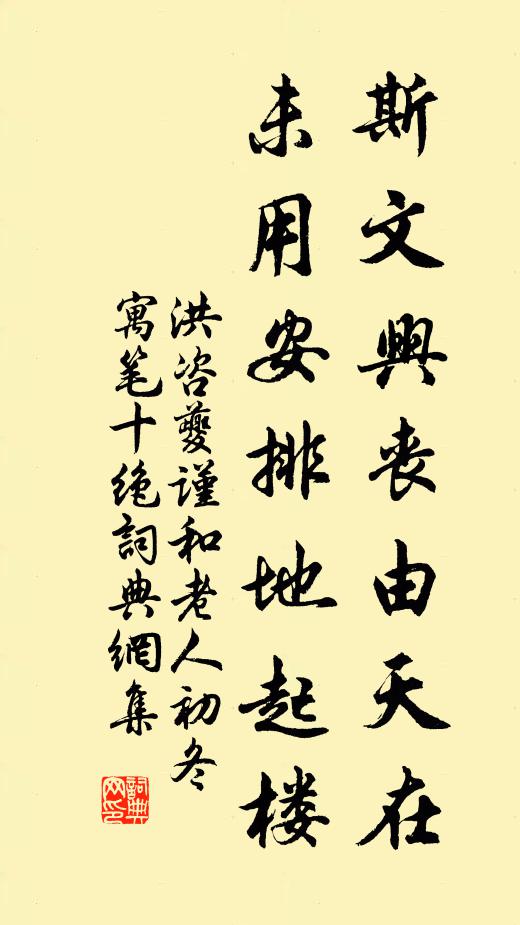 斯文興喪由天在
未用安排地起楼
洪咨夔謹和老人初冬
寓笔十绝詞典網集
詞典
网印